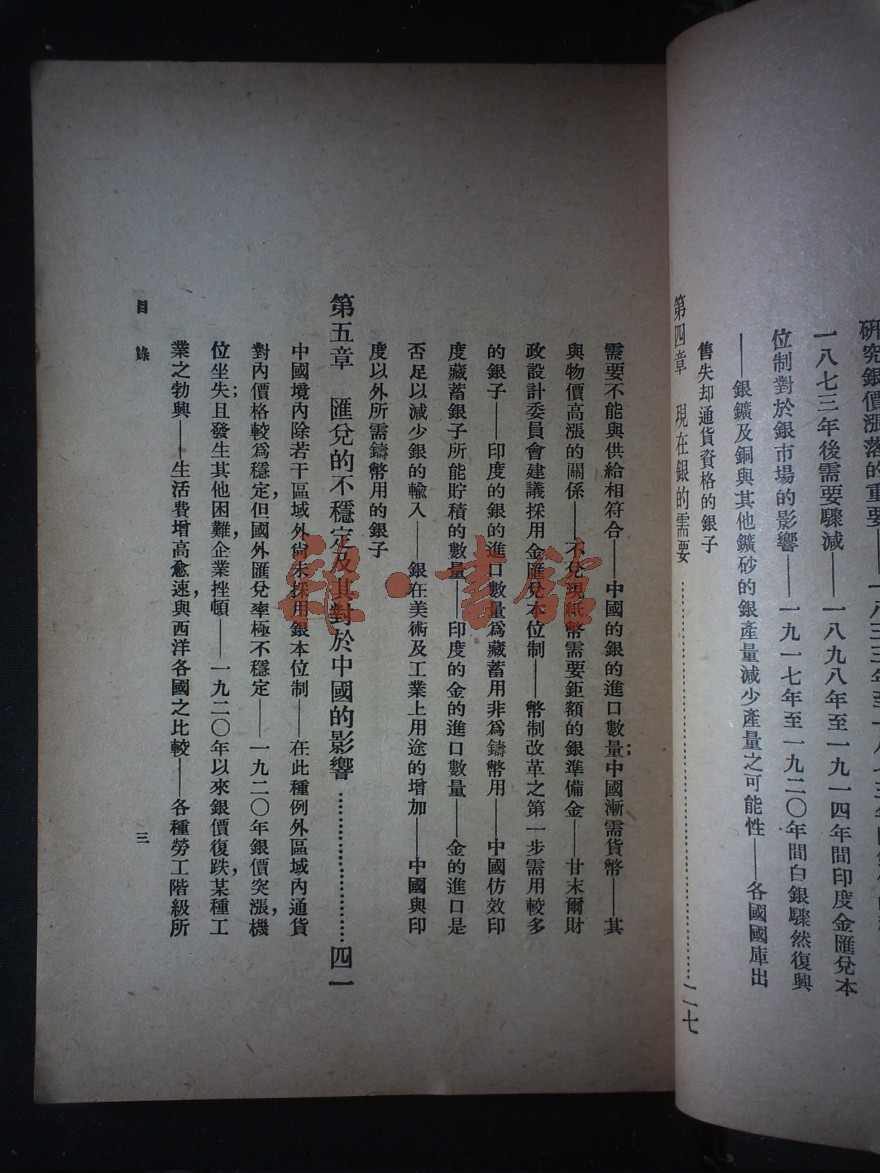 研究銀價漲落的重要——一八三三年至一八七三年
一八七三年後需要驟減——一八九八年至一九一四年間印度金匯兌本
位制對於銀市場的影響——一九一七年至一九二〇年間白銀驟然復興
——銀鑛及銅與其他鑛砂的銀產量減少產量之可能性——各國國庫出
售失却通貨資格的銀子
第四章 現在銀的需要……二七
需要不能與供給相符合——中國的銀的進口數量；中國漸需貨幣——其
與物價高漲的關係——不兌現紙幣需要鉅額的銀準備金——甘末爾財
政設計委員會建議採用金匯兌本位制——幣制改革之第一步需用較多
的銀子——印度的銀的進口數量爲藏蓄用非爲鑄幣用——中國仿效印
度藏蓄銀子所能貯積的數量——印度的金的進口數量——金的進口是
否足以減少銀的輸入——銀在美術及工業上用途的增加——中國與印
度以外所需鑄幣用的銀子
第五章 匯兌的不穩定及其對於中國的影響……四一
中國境內除若干區域外尙未採用銀本位制——在此種例外區域內通貨
對內價格較爲穩定，但國外匯兌率極不穩定——一九二〇年銀價突漲，機
位坐失；且發生其他困難，企業挫頓——一九二〇年以來銀價復跌，某種工
業之勃興——生活費增高愈速，與西洋各國之比較——各種勞工階級所
目錄
三
雜·書館